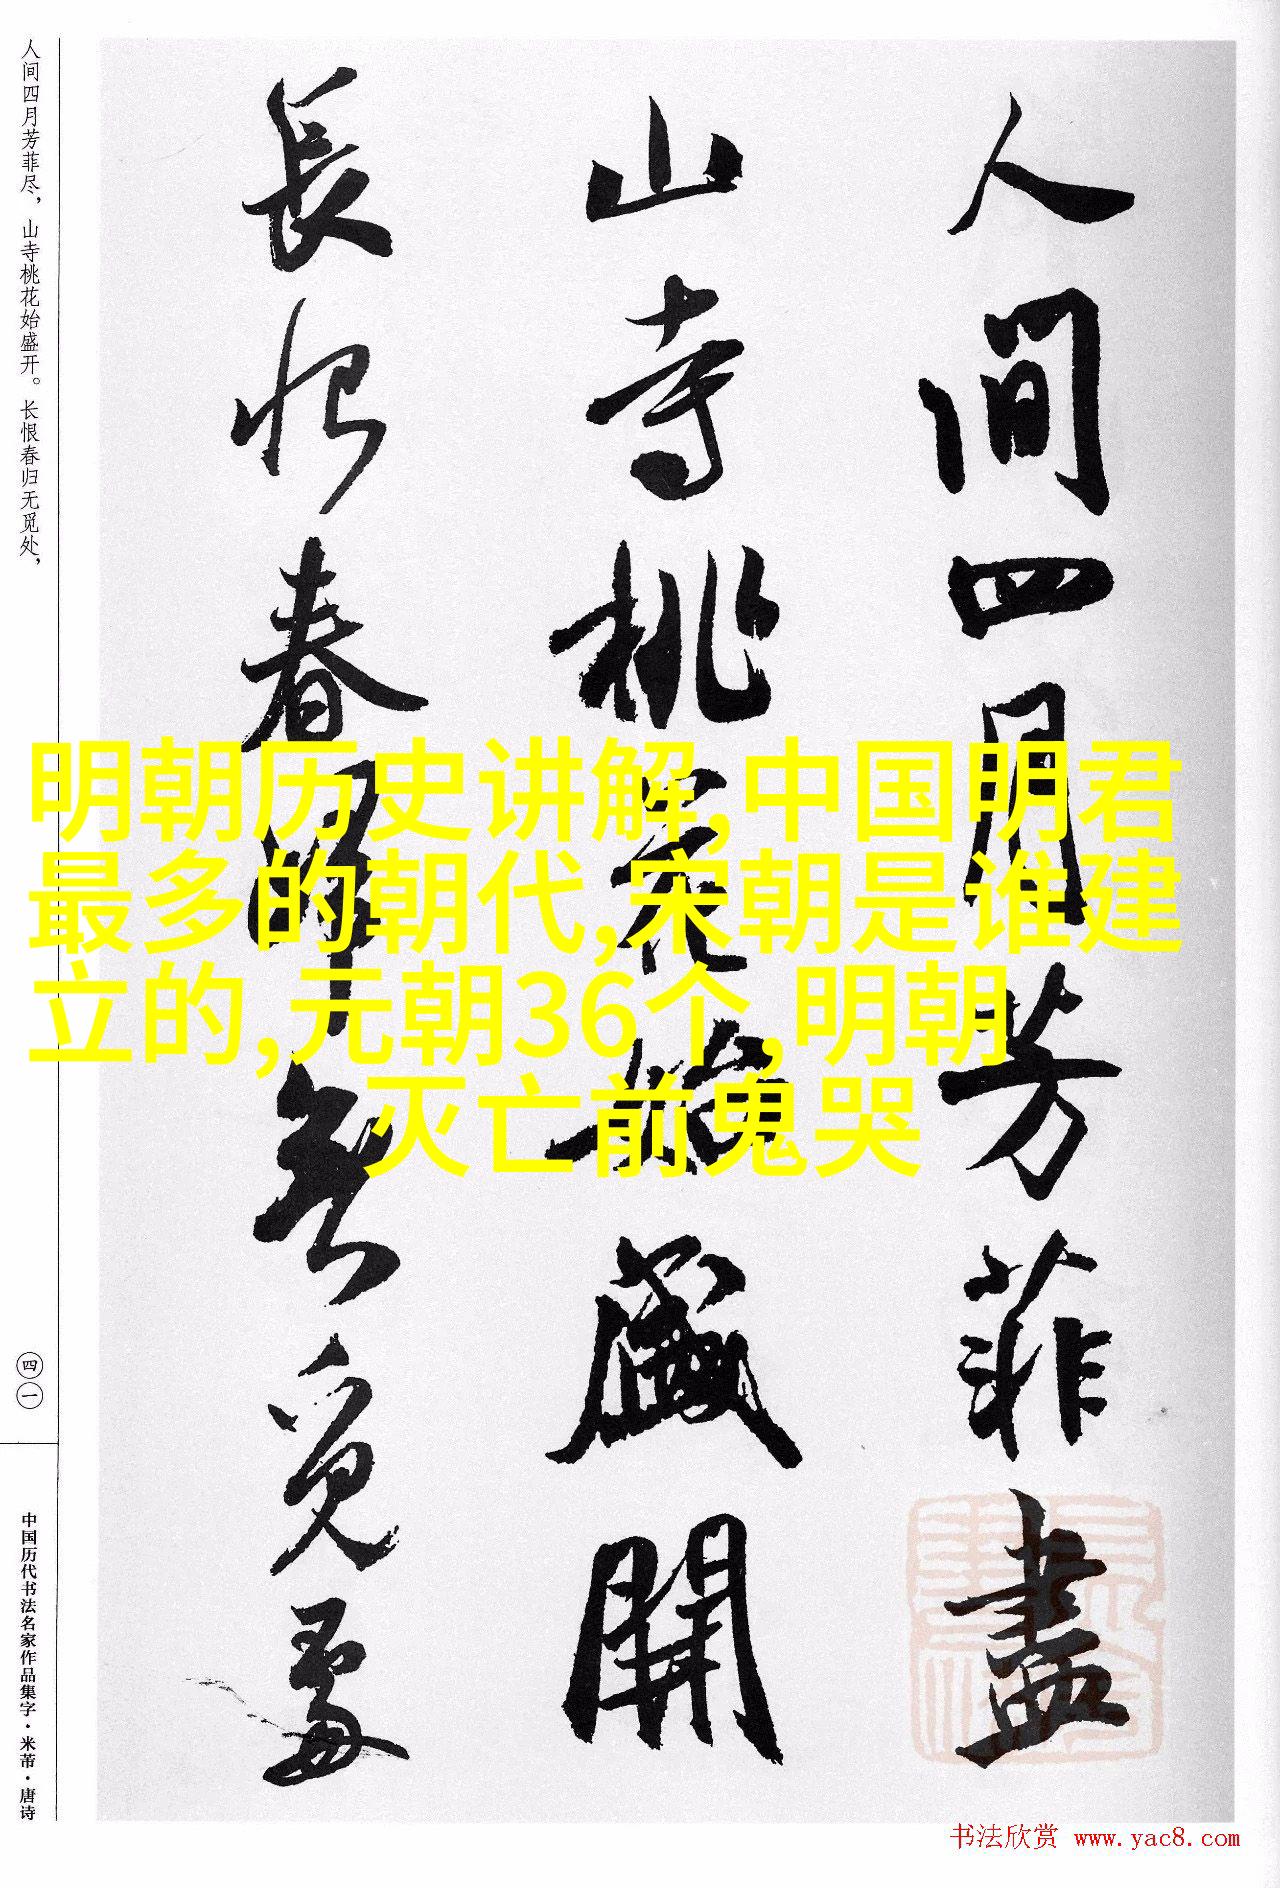 人間四月芳菲盡
山寺桃花始盛開
長恨春歸無覓處
人间四月芳菲尽，山寺桃花始盛开。长恨春归无觅处，
四一
中国历代书法名家作品集字·米芾·唐诗
明朝历史讲解,中国明君
最多的朝代,宋朝是谁建
立的,元朝36个,明朝
灭亡前鬼哭
书法欣赏 www.yac8.com